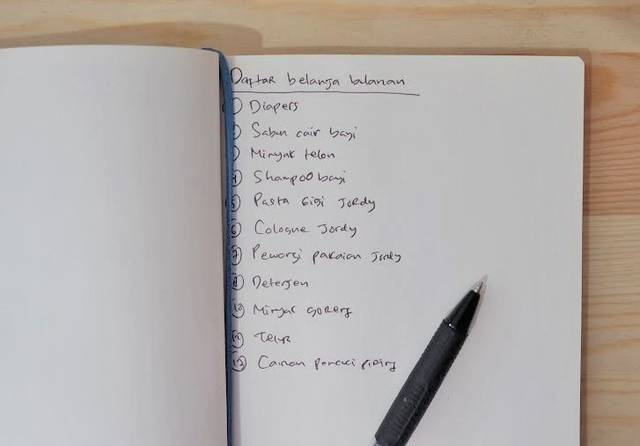 Daftar belanja bulanan
1 Diapers
2 Sabun cair bayi
3 Minyak telon
4 Shampoo bayi
5 Pasta Gigi Jordy
6 Cologne Jordy
7 Pewangi pakaian Jordy
8 Deterjen
10 Minyak goreng
11 Telur
12 Cairan pencuci piring